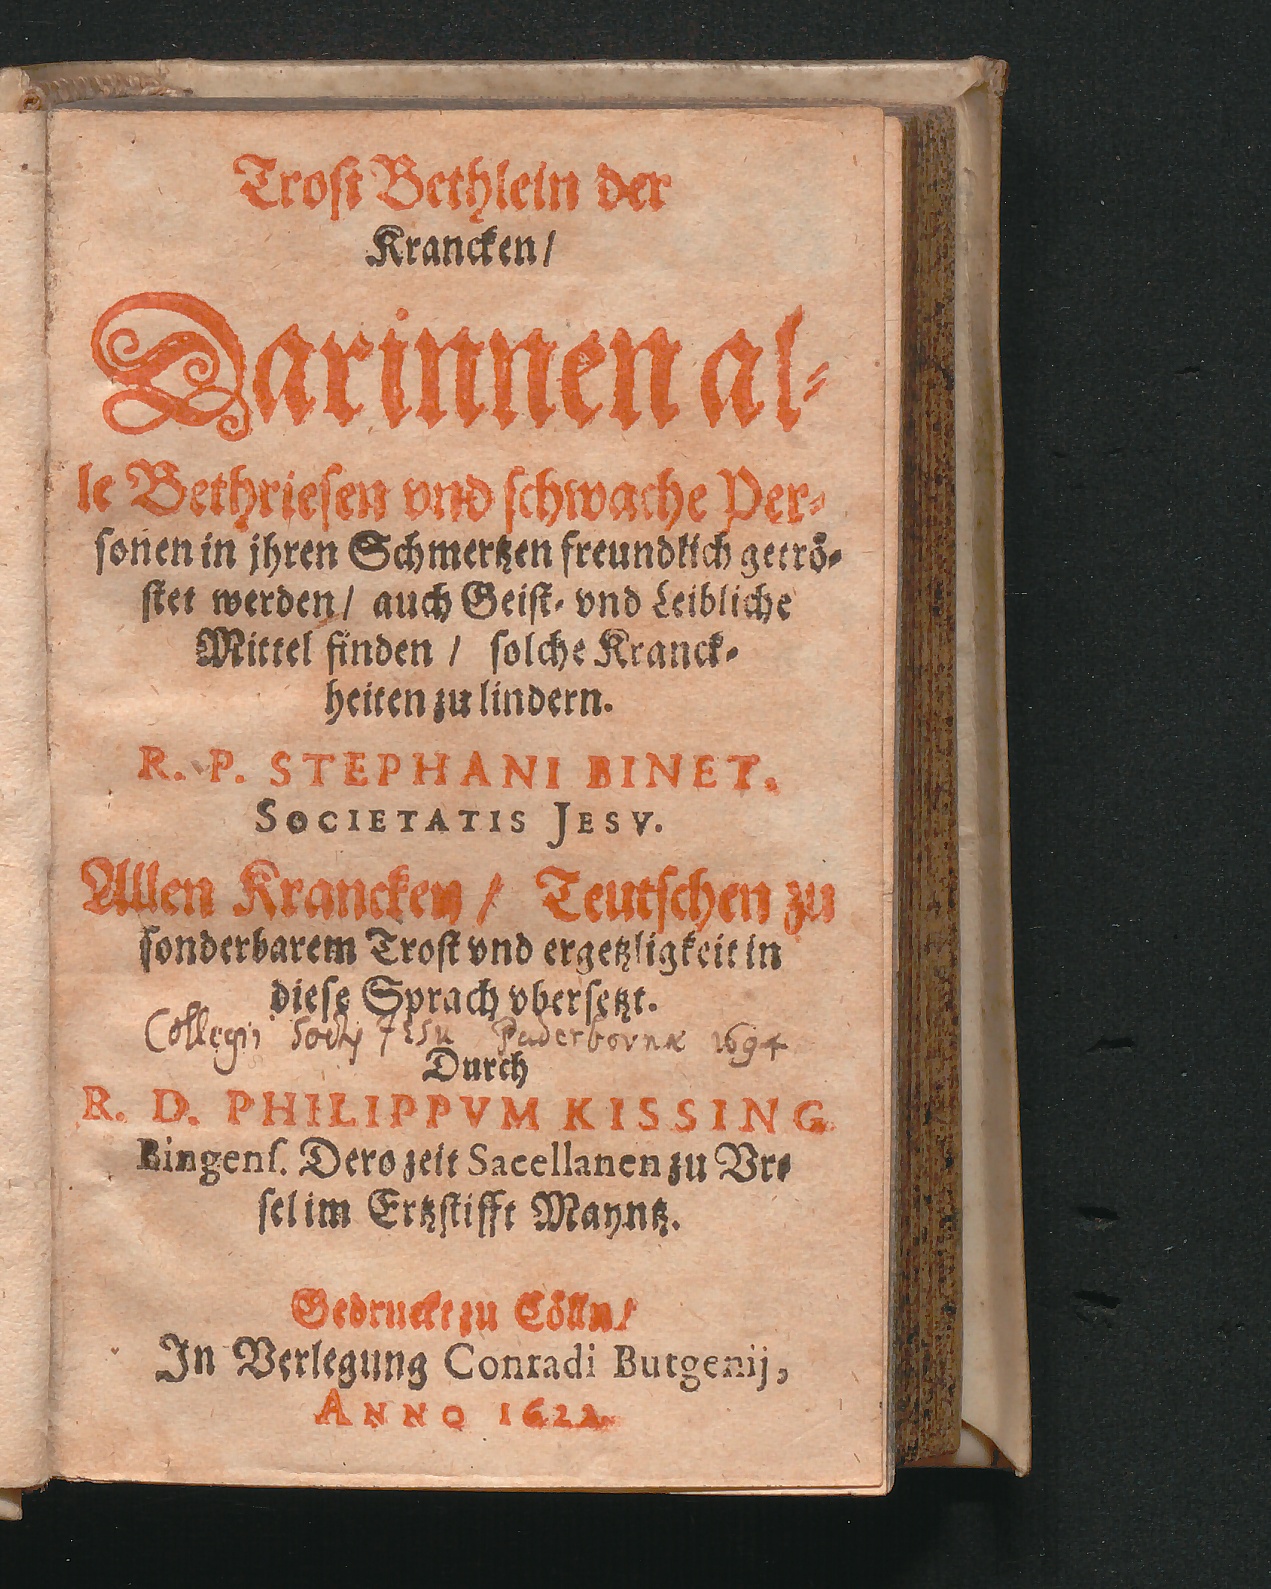 Trost Bethlein der
Krancken/
Darinnen al-
le Bethriesen vnd schwache Per-
sonen in jhren Schmertzen freundlich getrö-
stet werden/ auch Geist- vnd Leibliche
Mittel finden / solche Kranck-
heiten zu lindern.
R. P. STEPHANI BINET.
SOCIETATIS JESV.
Allen Krancken / Teutschen zu
sonderbarem Trost vnd ergetzligkeit in
diese Sprach vbersetzt.
Collegii Soctis Jesu Paderbornæ 1694
Durch
R. D. PHILIPPVM KISSING
Bingens. Dero zeit Sacellanen zu Vr-
sel im Ertzstifft Mayntz.
Gedruckt zu Cölln/
In Verlegung Conradi Butgenij,
ANNO 1622.